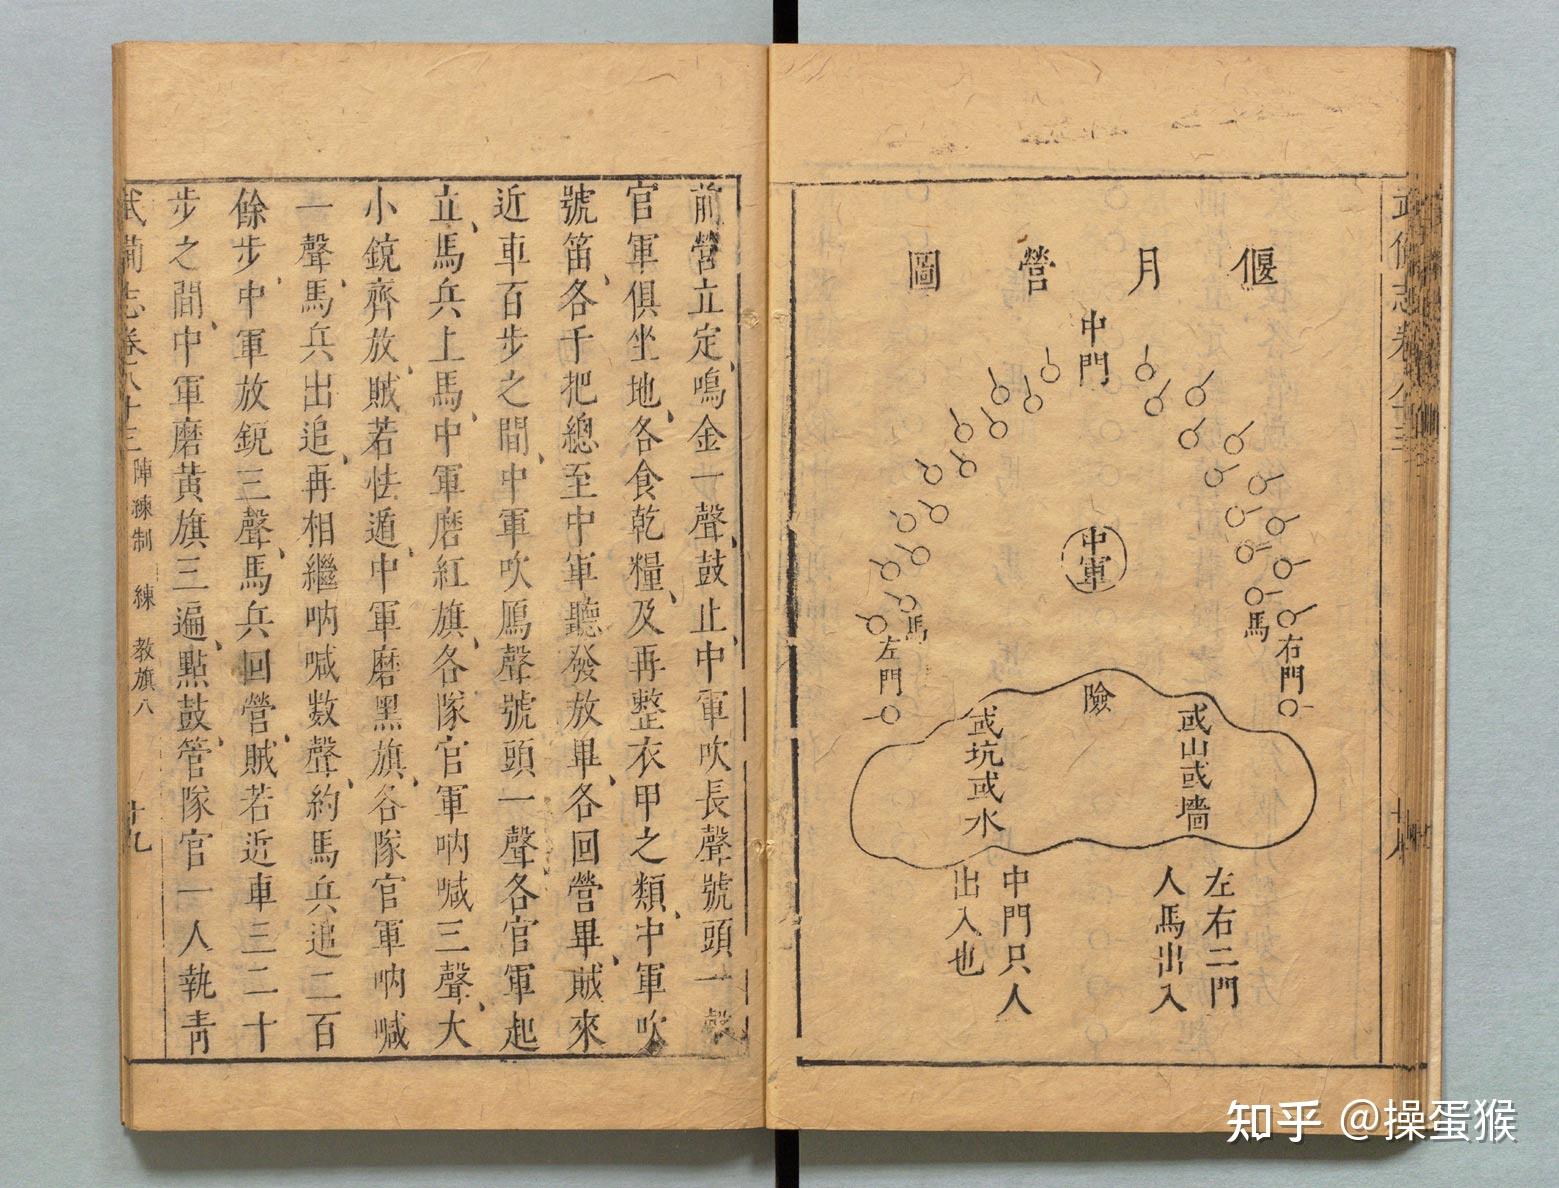 偃月營圖
中門
中軍
馬
右門
馬
左門
險
或山或墻
或坑或水
左右二門
人馬出入
中門只人
出入也
前營立定、鳴金一聲、鼓止、中軍吹長聲號頭一聲
官軍俱坐地、各食乾糧、及再整衣甲之類、中軍吹
號笛、各千把總至中軍聽發放畢、各回營畢、賊來
近車百步之間、中軍吹鴈聲號頭一聲各官軍起
立、馬兵上馬、中軍磨紅旗、各隊官軍吶喊三聲、大
小銃齊放、賊若怯遁、中軍磨黑旗、各隊官軍吶喊
一聲、馬兵出追、再相繼吶喊數聲、約馬兵追二百
餘步、中軍放銃三聲、馬兵回營、賊若近車三二十
步之間、中軍磨黃旗三遍、點鼓、管隊官一人執青
武備志卷八十三 陣練制 練 教旗八 十九
知乎 @操蛋猴